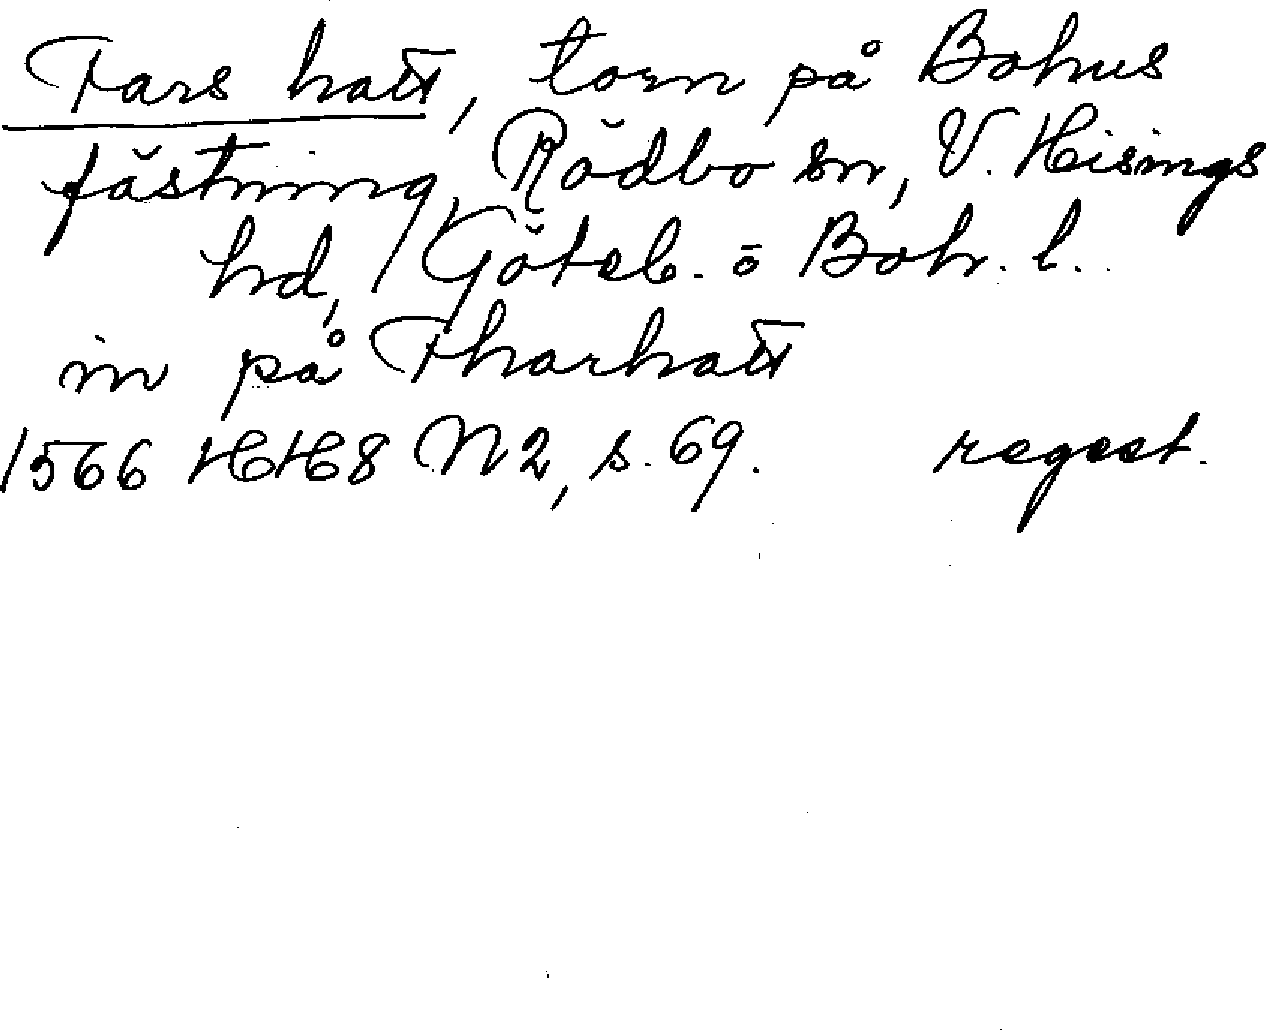 Fars hatt, torn på Bohus
fästning, Rödbo sn, V. Hisings
hd, Göteb. ō Boh. l.
in på Fharhatt
1566 HH8 N2, s. 69. regest.